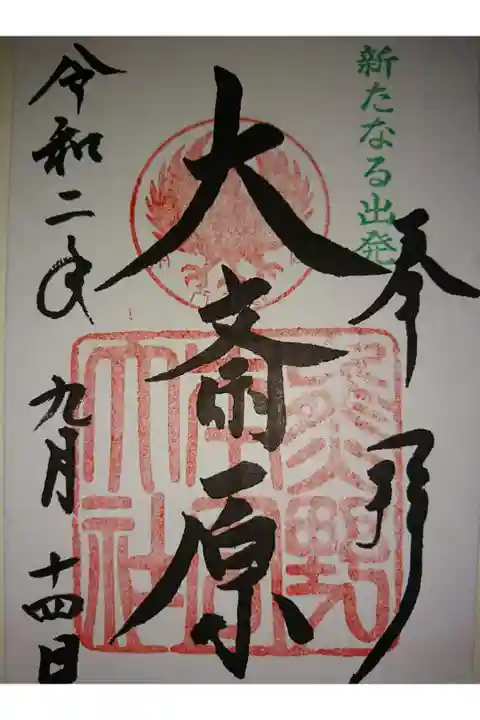 新たなる出発
奉拝
大斎原
令和二年九月十四日
熊野
本宮
大社